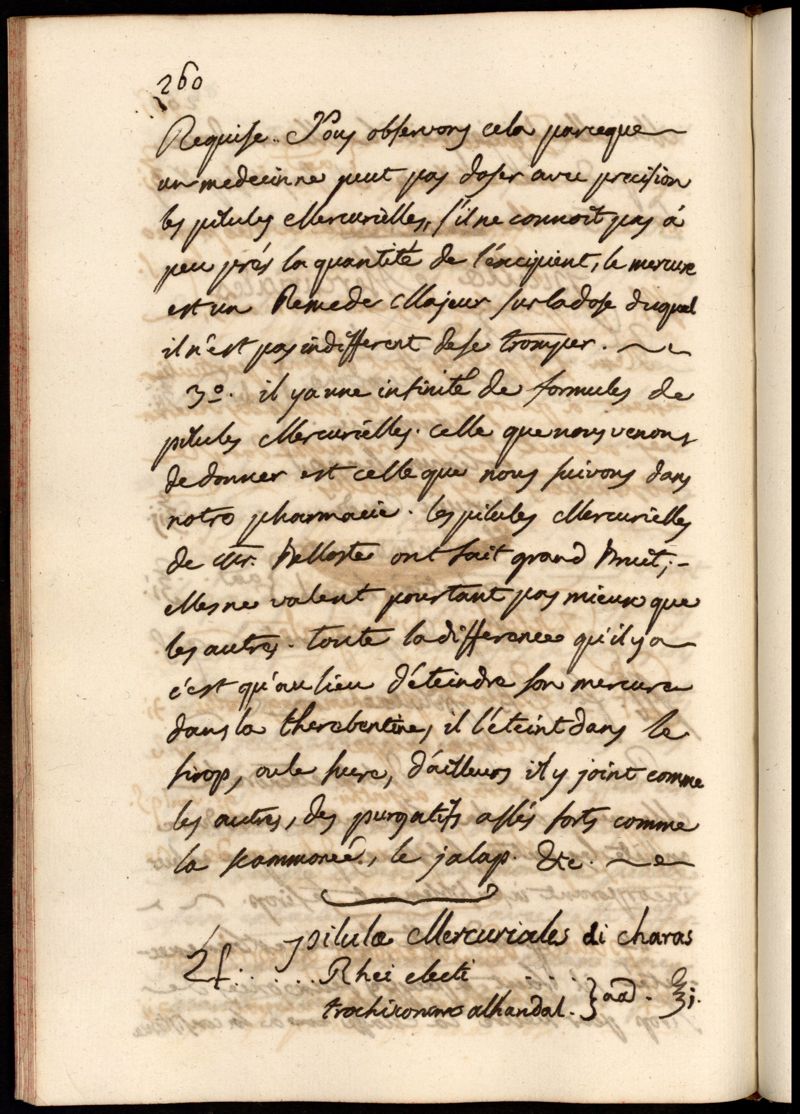 260
Requise. Nous observons cela parceque
un medecin ne peut pas doser avec precision
les pilules Mercurielles, s'il ne connoit pas á
peu prés la quantité de l'éxcipient, le mercure
est un Remede Majeur sur la dose duquel
il n'est pas indifferent de se tromper.
3º. il ya une infinité de formules de
pilules Mercurielles. celle que nous venons
de donner est celle que nous suivons dans
notre pharmacie. les pilules Mercurielles
de Mr. Belloste ont fait grand Bruit;
elles ne valent pourtant pas mieux que
les autres. toute la difference qu'il ya
c'est qu'au lieu d'éteindre son mercure
dans la therebentine, il l'éteint dans le
sirop, ou le sucre, d'ailleurs il y joint comme
les autres, des purgatifs assés forts comme
la scammoneé, le jalap. &c.
pilulæ Mercuriales di charas
♃. Rhei electi
trochisconum alhandal. } aa. ʒj.